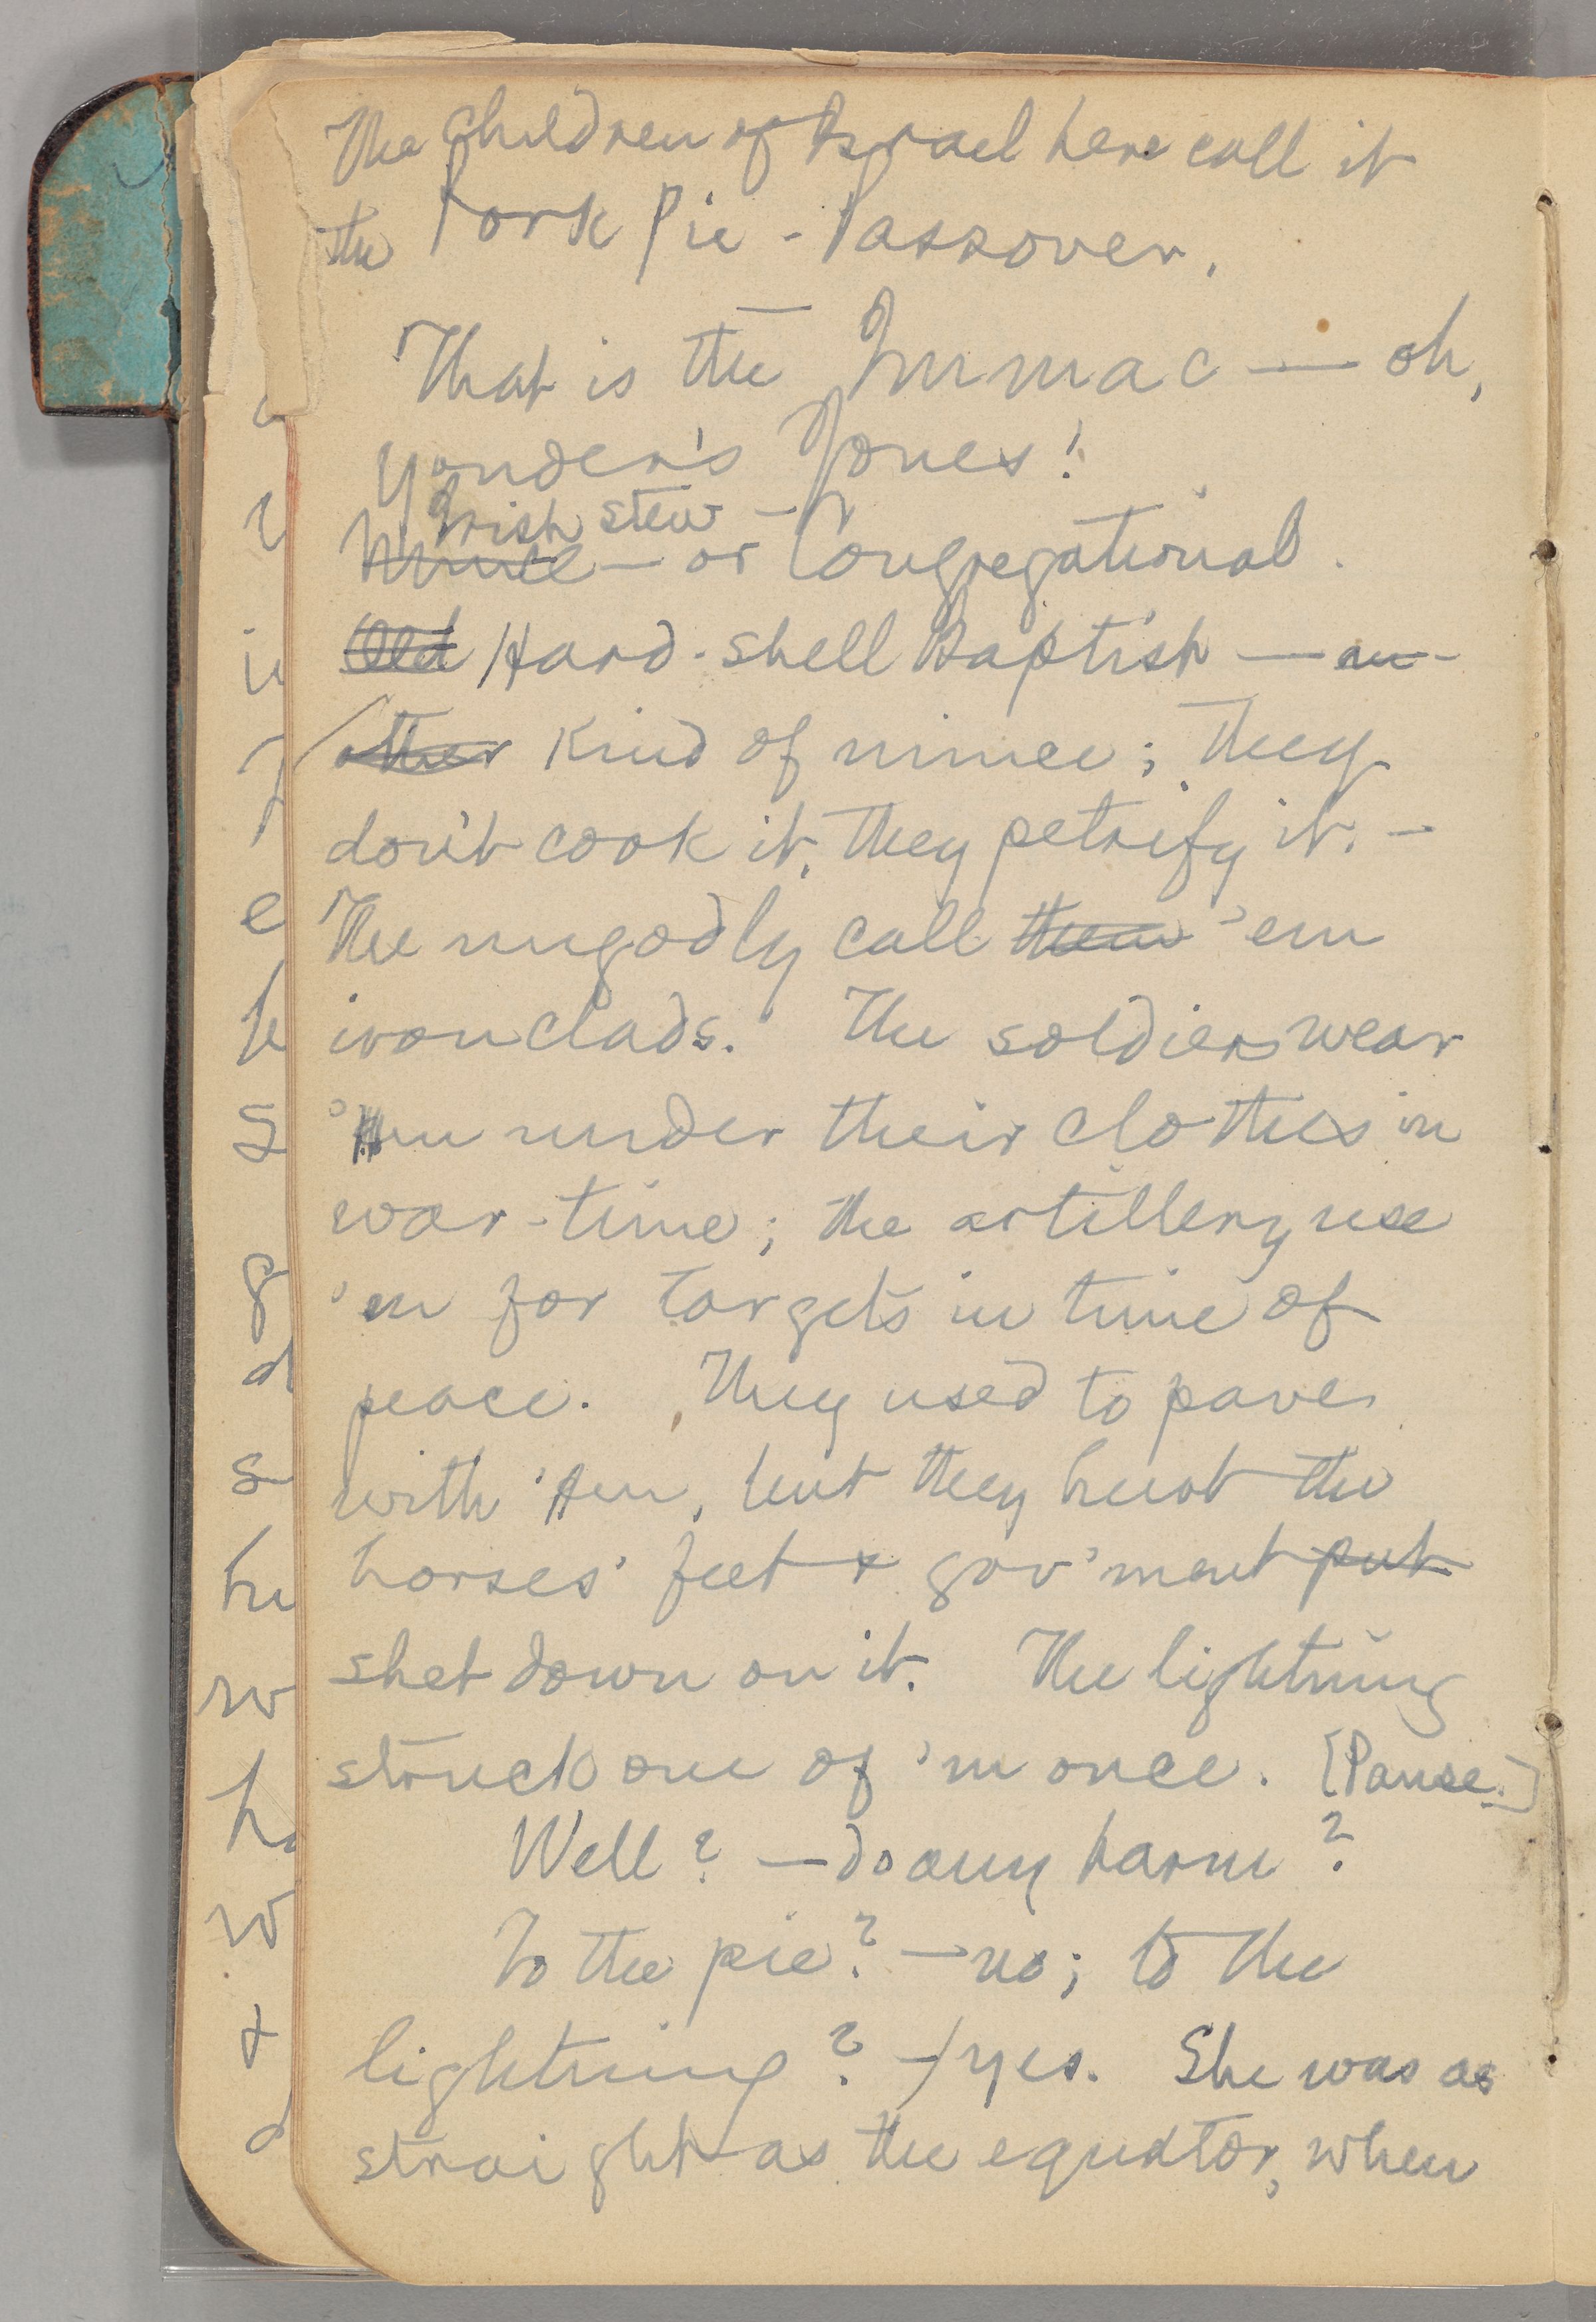 The Children of Israel here call it
the Pork Pie-Passover.
That is the Immac — oh,
yonder's Jones!
Irish stew —
Mince — or Congregational.
Old Hard-shell Baptist — an-
other kind of mince; they
don't cook it, they petrify it. —
The ungodly call them 'em
ironclads. The soldiers wear
'em under their clothes in
war-time; the artillery use
'em for targets in time of
peace. They used to pave
with 'em, but they bust the
horses' feet & gov'ment put
shet down on it. The lightning
struck one of 'm once. [Pause.]
Well? — do any harm?
To the pie? — no; to the
lightning? — yes. She was as
straight as the equator, when